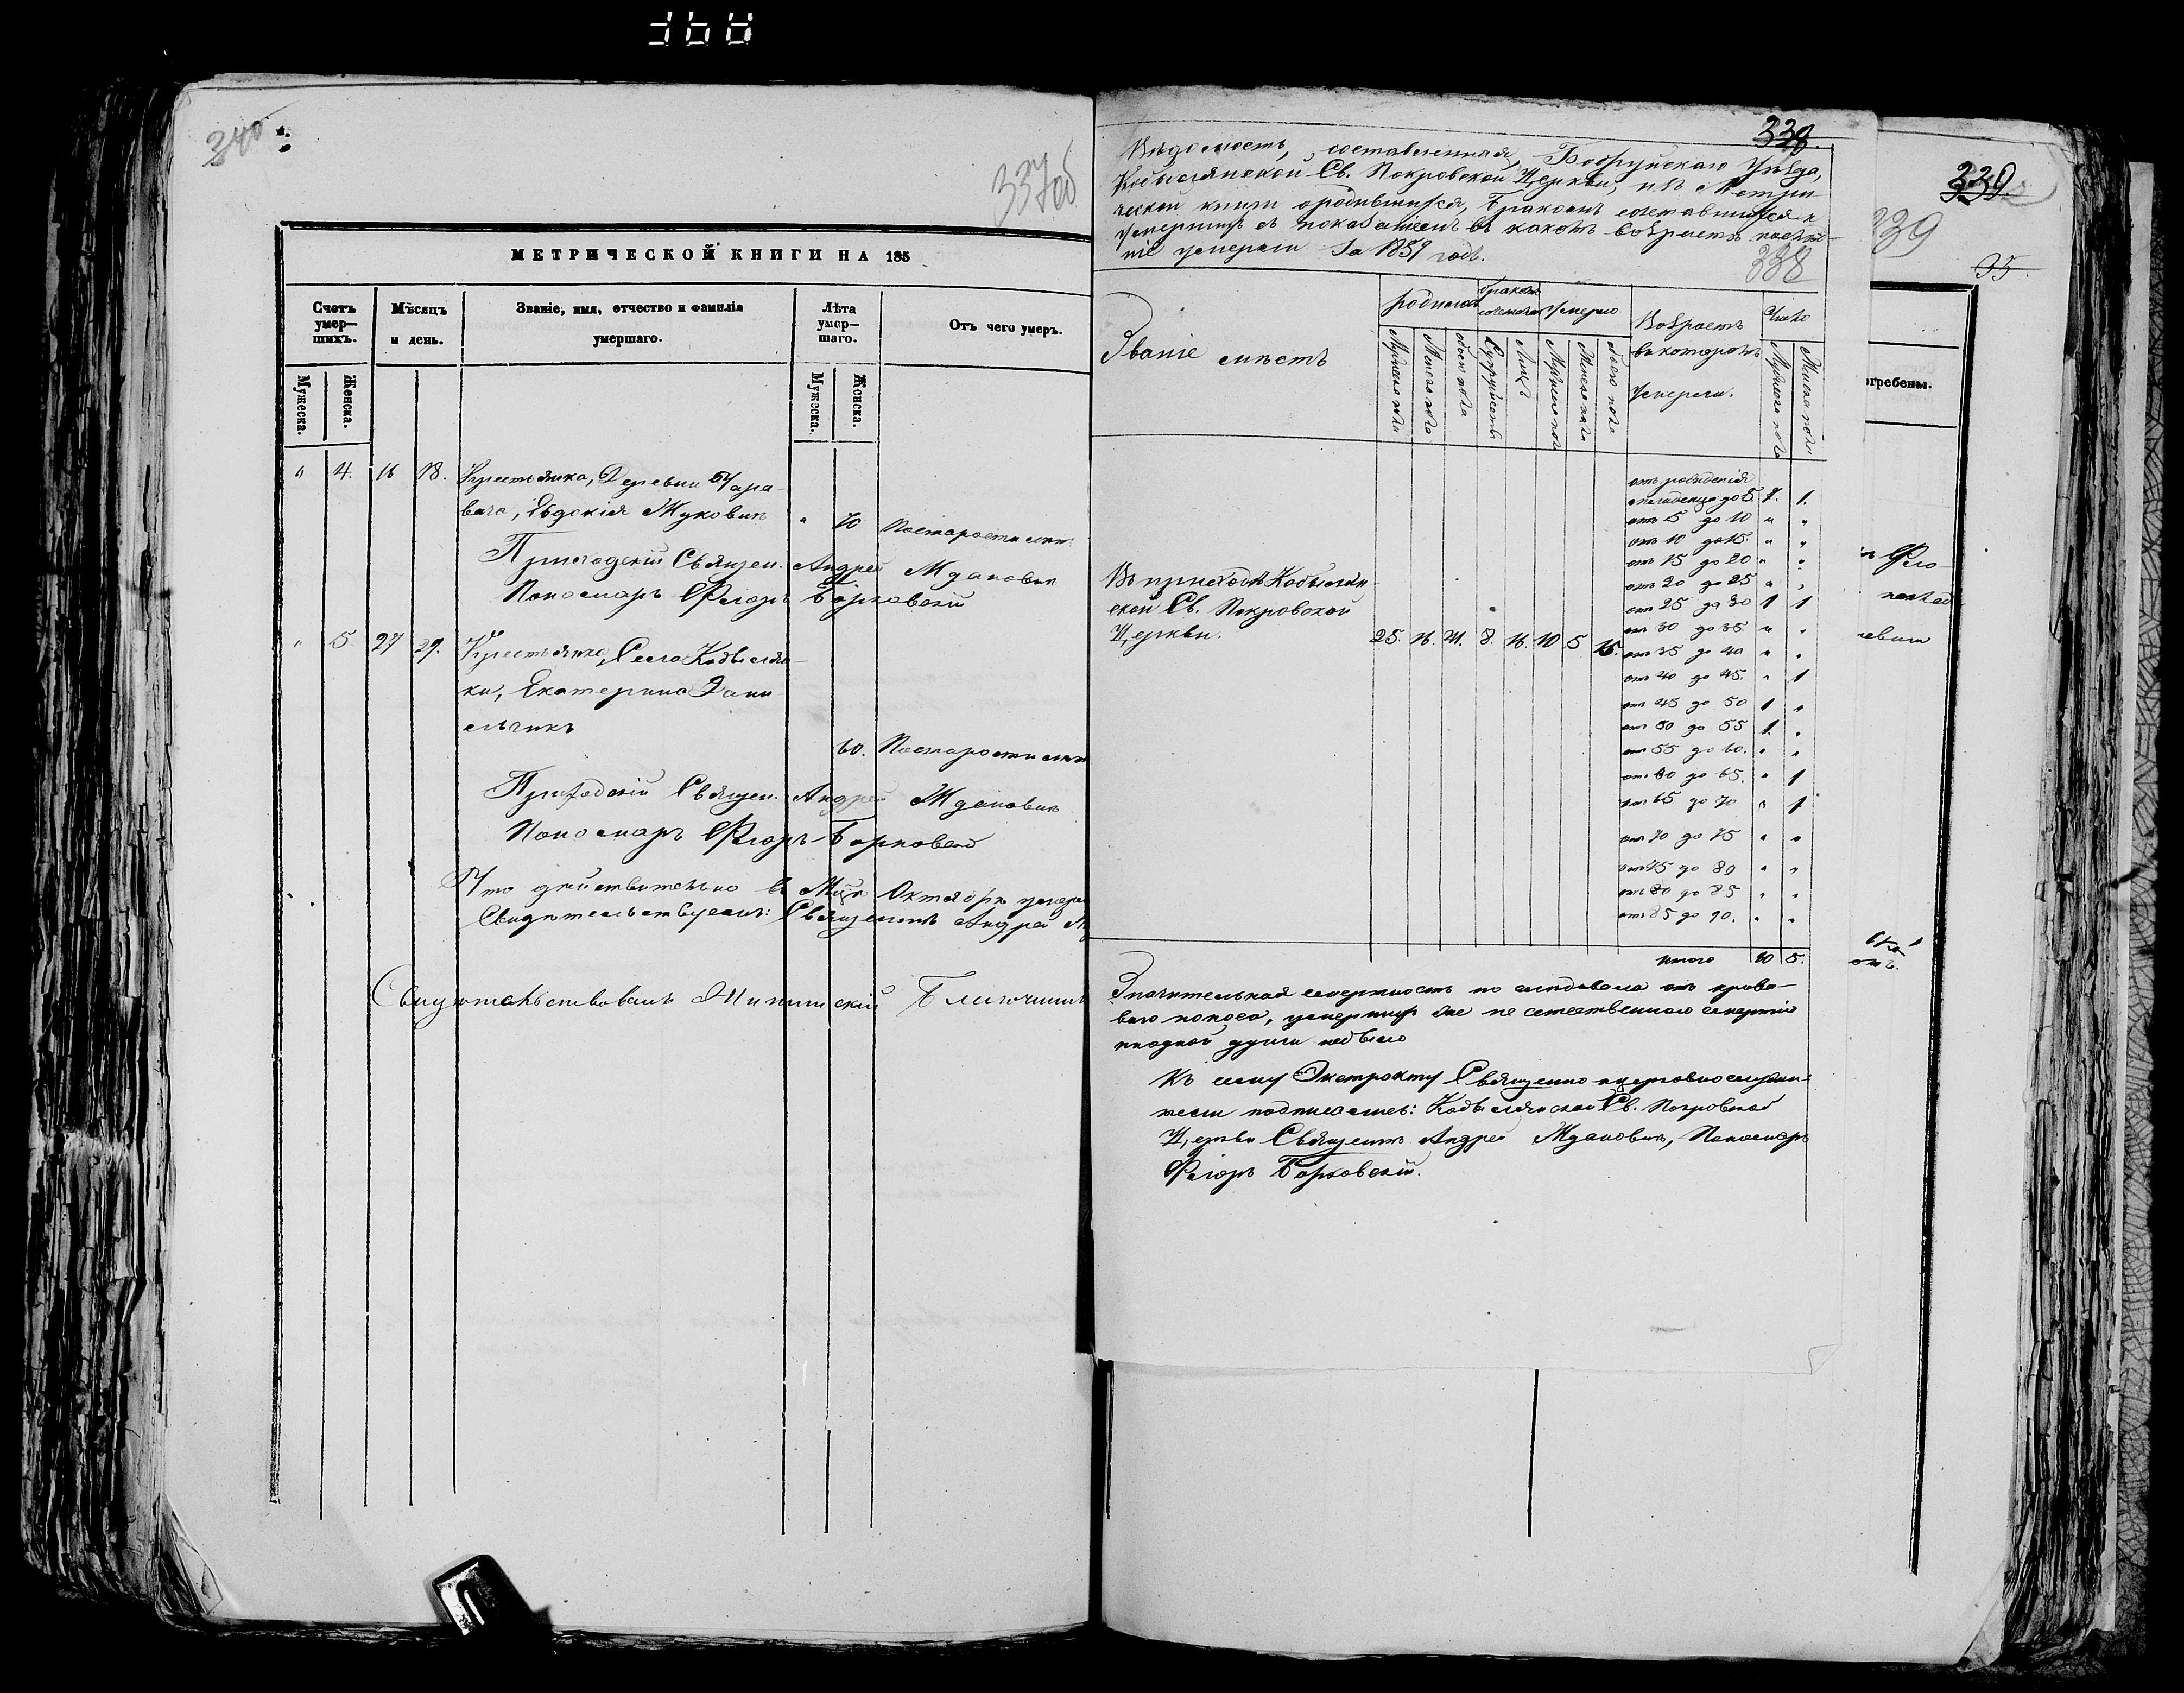 340
337об
МЕТРИЧЕСКОЙ КНИГИ НА 185
Счетъ умер—шихъ.
Мѣсяцъ и день.
Званіе, имя, отчество и фамилія умершаго.
Лѣта умер—шаго.
Отъ чего умеръ.
Мужеска. Женска. Мужеска. Женска.
" 4. 16 18. Крестьянка, Деревни
вича, Евдокія Жуковичъ " 70 Постарости лѣтъ
Приходскій Священ. Андрей Ждановичъ
Пономаръ Фліоръ Борковскій
" 5. 27 29. Крестьянка, Села Кобыля-
ки, Екатерина Дани
ельчикъ
60. Постарости лѣтъ
Приходскій Священ. Андрей Ждановичъ
Пономаръ Фліоръ Борковскій
Что дѣйствительно въ Мцѣ Октябрѣ умер
Свидѣтельствуемъ: Священникъ Андрей
Свидѣтельствовалъ Благочинный
338.
Вѣдомость, составленная, Бобруйскаго Уѣзда,
Кобылянской Св. Покровской Церкви, изъ Метри
ческой книги о родившихся, Бракомъ сочетавшихся и
умершихъ съ показаніемъ въ какомъ возрастѣ
ніе умерли За 1859 годъ.
338
Званіе мѣстъ
родилось
Бракомъ сочеталось
Умерло
Возрастъ
въ которомъ
умерли.
Число
Мужеска пола
Женска пола
обоего пола
Супружествъ
Лицъ
Мужеска пола
Женска пола
обоего пола
Мужеска пола
Женска пола
Въ приходѣ Кобылян
ской Св. Покровской
Церкви. 25. 16. 41. 8. 16. 10 5 15.
отъ рожденія
младенца до 5. 7. 1.
отъ 5 до 10 " "
отъ 10 до 15. " "
отъ 15 до 20 " "
отъ 20 до 25 " "
отъ 25 до 30 1 1
отъ 30 до 35. " "
отъ 35 до 40 " "
отъ 40 до 45. " 1
отъ 45 до 50 1 "
отъ 50 до 55 1. "
отъ 55 до 60. " "
отъ 60 до 65. " 1
отъ 65 до 70 " 1
отъ 70 до 75 " "
отъ 75 до 80 " "
отъ 80 до 85 " "
отъ 85 до 90. " "
итого 10 5.
Значительная смертность по слѣдовала отъ крова—
ваго поноса, умершихъ же не естественною смертію
ниодной души небыло
Къ сему Экстракту Священно ицерковнослужи-
тели подписались: Кобылянской Св. Покровской
Церкви Священникъ Андрей Ждановичъ, Пономаръ
Фліоръ Борковскій.
339
339
95.
огребены.